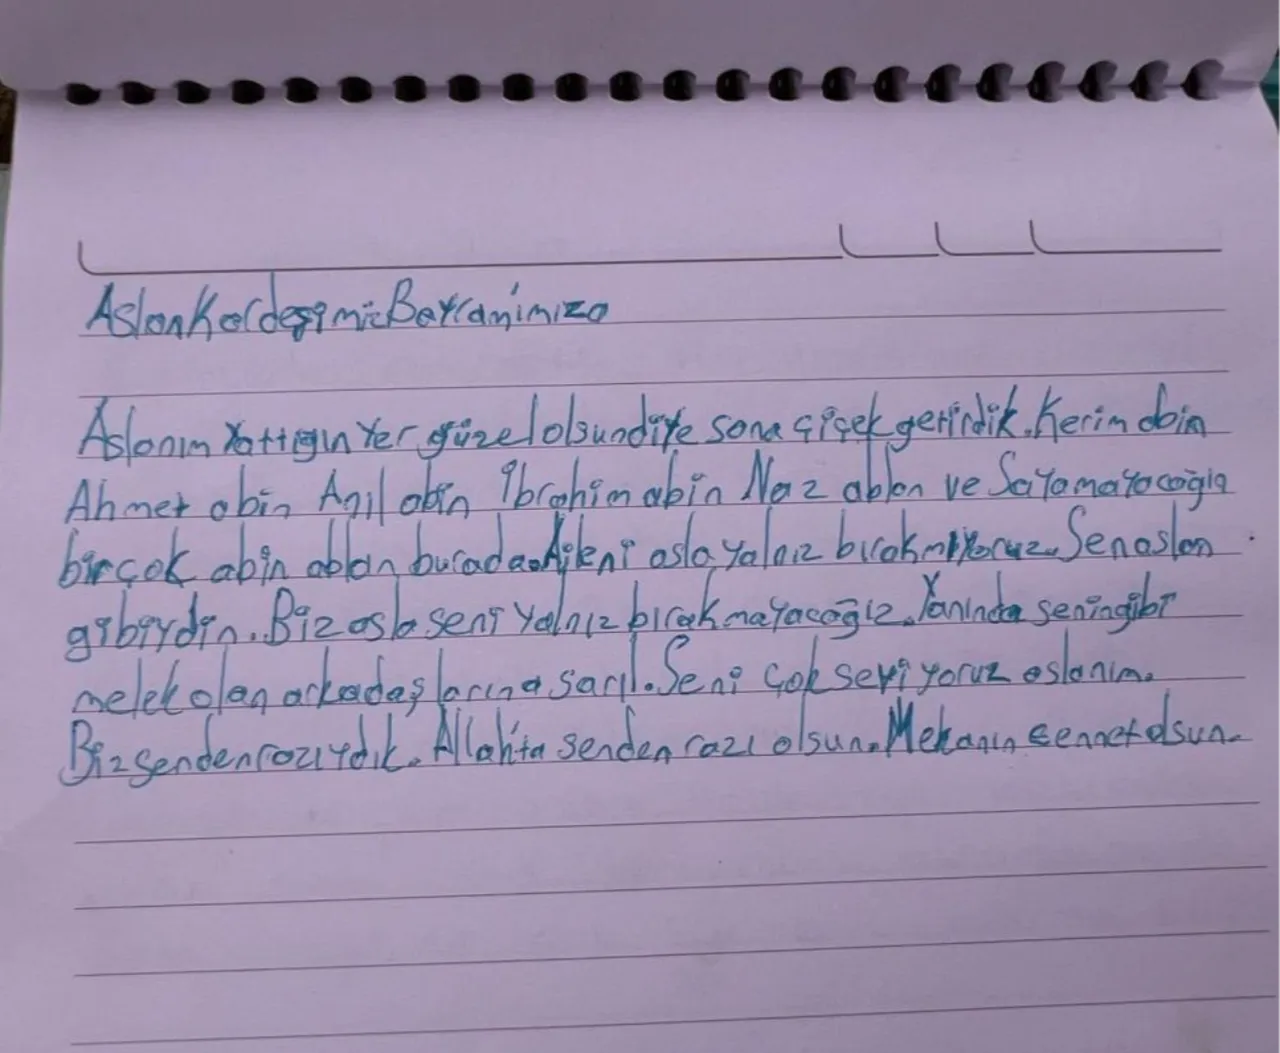 Aslan Kardeşimiz Bayramımıza
Aslanım Yattığın Yer güzel olsun diye sana çiçek getirdik. Kerim abin
Ahmet abin Anıl abin İbrahim abin Naz ablan ve Sayamayacağım
birçok abin ablan burada. Aileni asla yalnız bırakmıyoruz. Sen aslan
gibiydin. Biz asla seni yalnız bırakmayacağız. Yanında senin gibi
melek olan arkadaşlarına sarıl. Seni çok seviyoruz aslanım.
Biz senden razıydık. Allah'ta senden razı olsun. Mekanın cennet olsun.